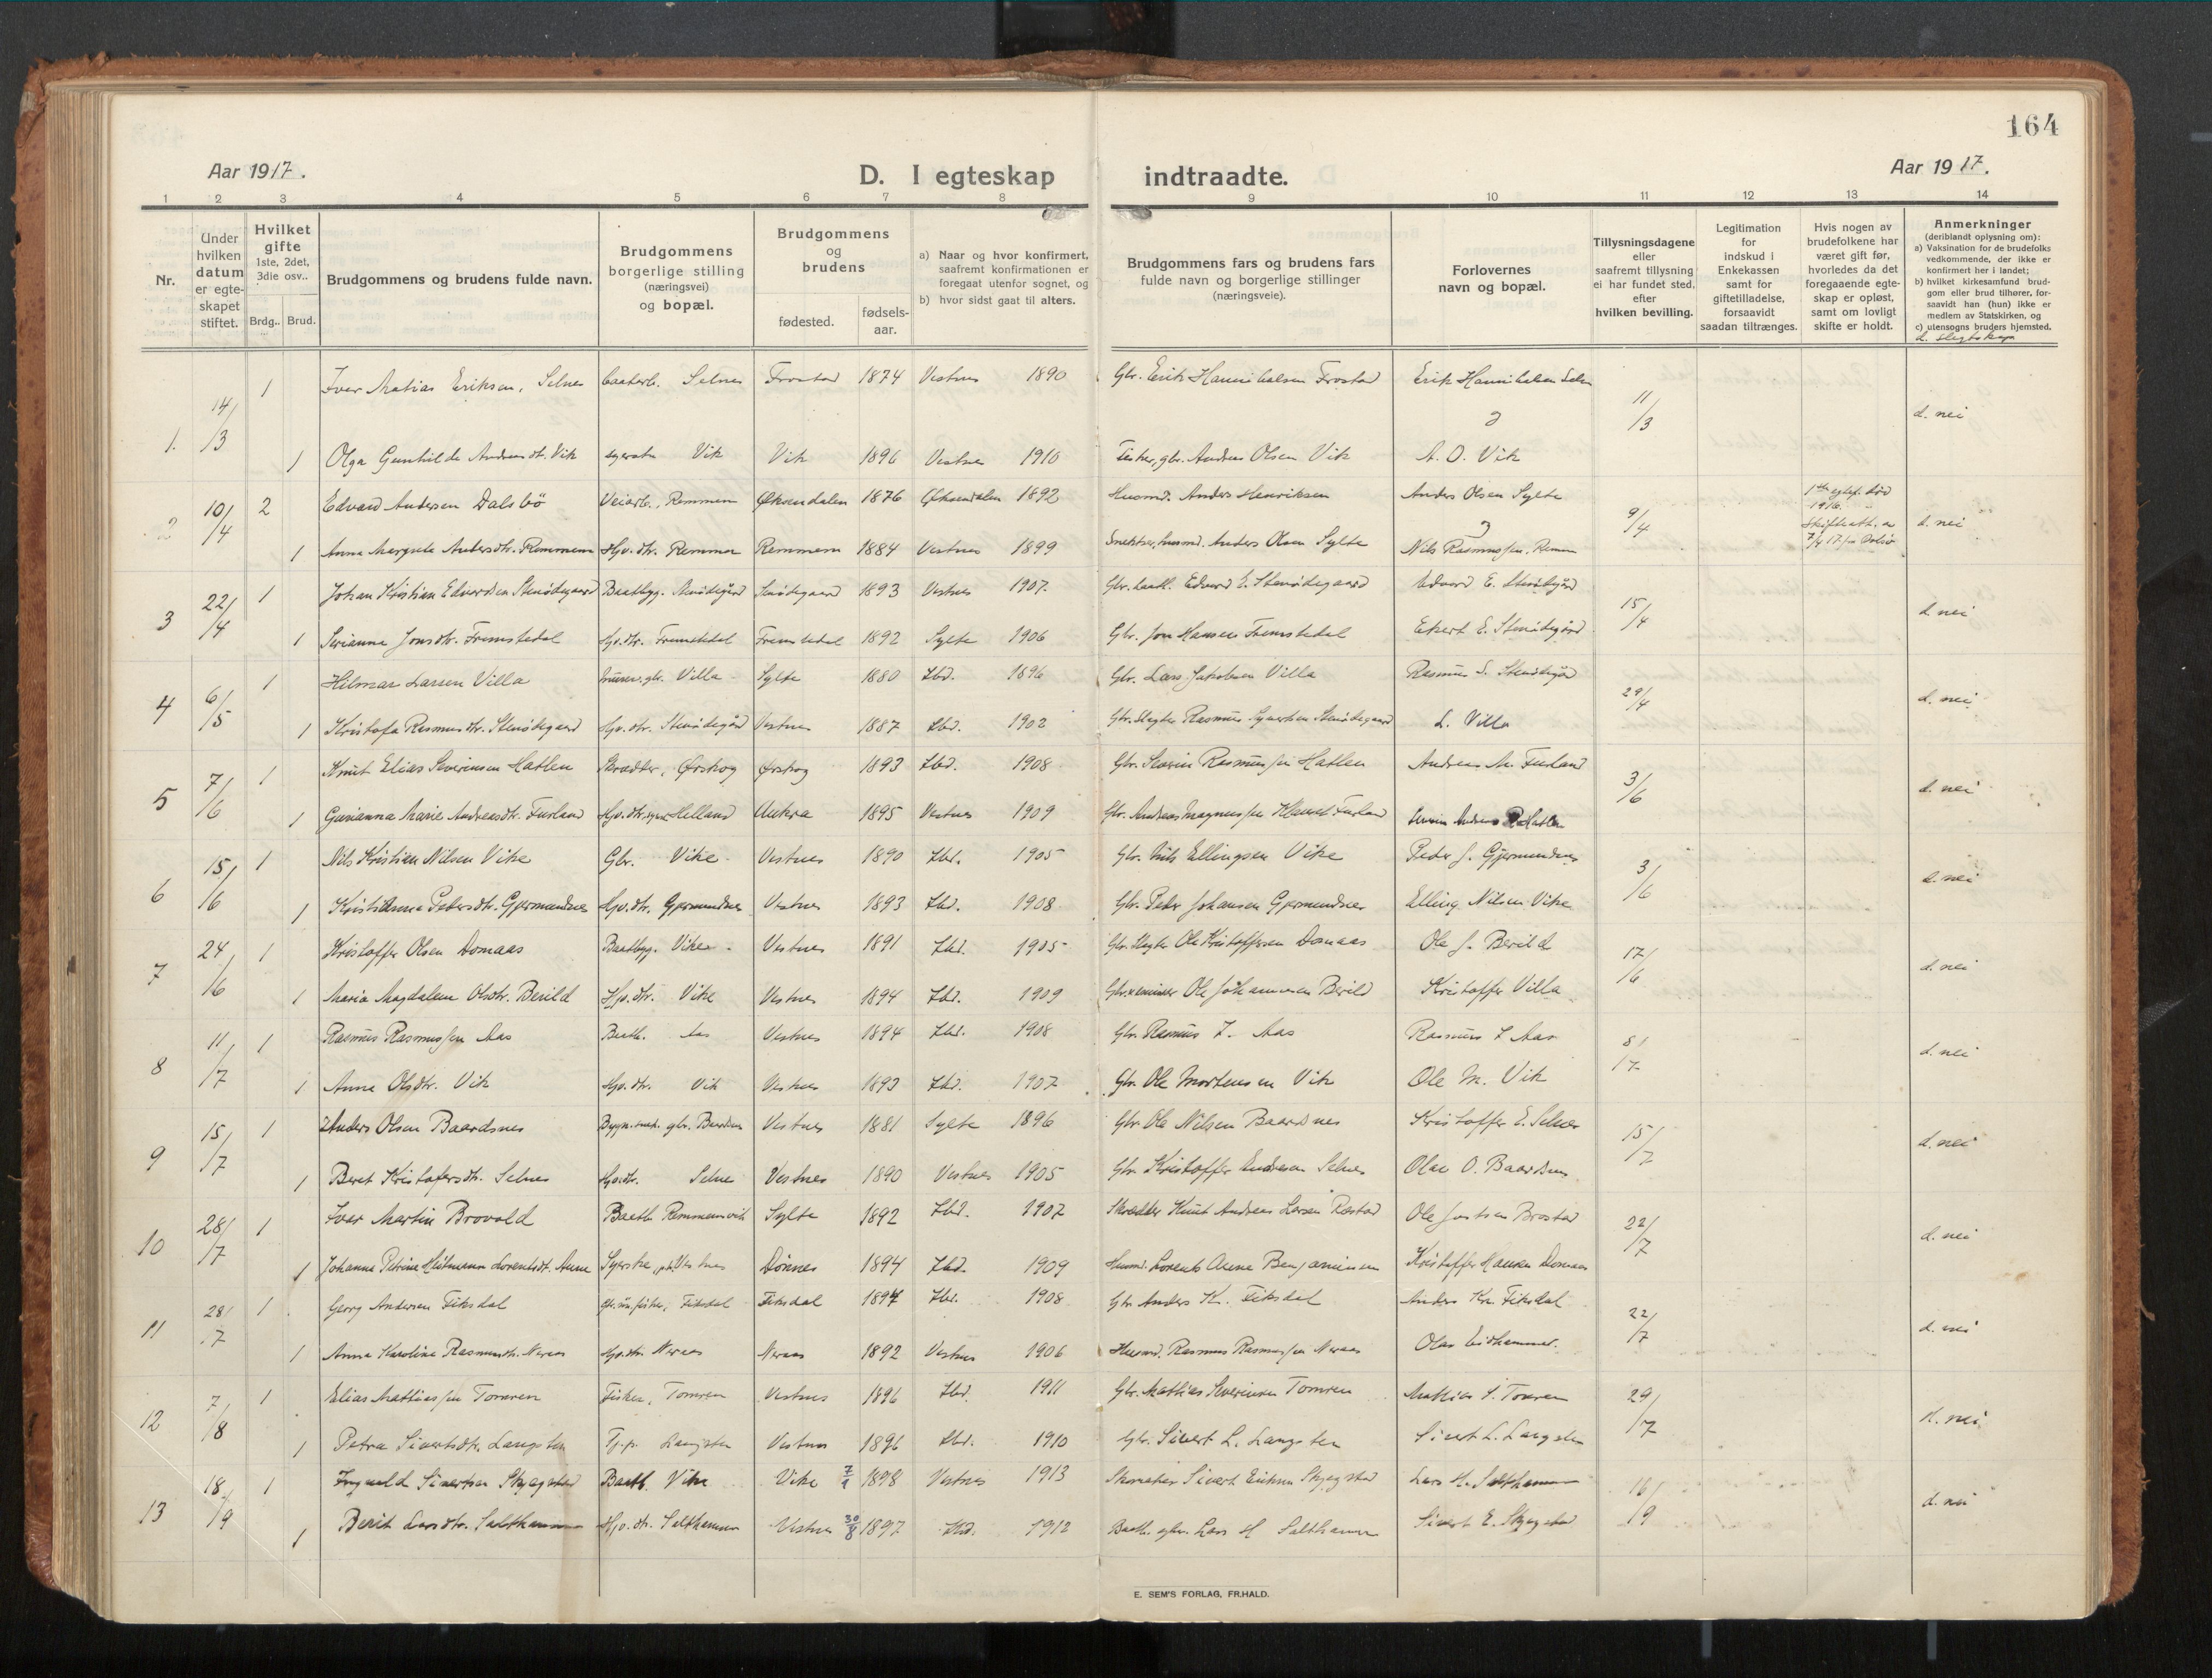 164
Aar 1917.
D. I egteskap indtraadte.
Aar 1917.
1 2 3 4 5 6 7 8 9 10 11 12 13 14
Nr.
Under hvilken datum er egteskapet stiftet.
Hvilket gifte 1ste, 2det, 3die osv..
Brdg.. Brud.
Brudgommens og brudens fulde navn.
Brudgommens borgerlige stilling (næringsvei) og bopæl.
Brudgommens og brudens
fødested.
fødsels-aar.
a) Naar og hvor konfirmert, saafremt konfirmationen er foregaat utenfor sognet, og
b) hvor sidst gaat til alters.
Brudgommens fars og brudens fars fulde navn og borgerlige stillinger (næringsveie).
Forlovernes navn og bopæl.
Tillysningsdagene eller saafremt tillysning ei har fundet sted, efter hvilken bevilling.
Legitimation for indskud i Enkekassen samt for giftetilladelse, forsaavidt saadan tiltrænges.
Hvis nogen av brudefolkene har været gift før, hvorledes da det foregaaende egteskap er opløst, samt om lovligt skifte er holdt.
Anmerkninger (deriblandt oplysning om):
a) Vaksination for de brudefolks vedkommende, der ikke er konfirmert her i landet;
b) hvilket kirkesamfund brudgom eller brud tilhører, forsaavidt han (hun) ikke er medlem av Statskirken, og
c) utensogns bruders hjemsted.
d. slegtskap
1. 14/3 1 Iver Matias Eriksen, Selnes Baatarb. Selnes Frostad 1874 Vestnes 1890 Gbr. Erik Hannibalsen Frostad Erik Hannibalsen 11/3 d. nei
1 Olga Gunhilde Andreasdt. Vik syerske Vik Vik 1896 Vestnes 1910 Fisker, gbr. Andreas Olsen Vik A. O. Vik
2 10/4 2 Edvard Andersen Dalsbö Veiarb., Remmem Øksendalen 1876 Øksendalen 1892 Husmd. Anders Henriksen Anders Olsen Sylte 9/4 1ste egtef. død 1916. d. nei
1 Anna Margrete Andersdtr. Remmem Hjv. dtr. Remmem Remmem 1884 Vestnes 1899 Snekker, husmd. Anders Olsen Sylte Nils Rasmussen,
3 22/4 1 Johan Kristian Edvardsen Stenødegaard Baatbyg. Stenødegård Stenødegaard 1893 Vestnes 1907. Gbr. Edvard E. Stenødegaard Edvard E. Stenødegård 15/4 d. nei
1 Serianna Jonsdtr. Fremstedal Hjv. dtr. Fremstedal Fremstedal 1892 Sylte 1906 Gbr. Jon Hansen Fremstedal Ekert E. Stenødegård
4 6/5 1 Hilmar Larsen Villa Murer, gbr. Villa Sylte 1880 Ibd. 1896 Gbr. Lars Jakobsen Villa Rasmus S. Stenødegård 29/4 d. nei
1 Kristofa Rasmusdtr. Stenødegaard Hjv. dtr. Stenødegård Vestnes 1887 Ibd. 1902 Gbr. slagter Rasmus Syvertsen Stenødegaard L. Villa
5 7/6 1 Knut Elias Severinsen Hatlen Skrædder, Ørskog Ørskog 1893 Ibd. 1908 Gbr. Severin Rasmussen Hatlen Andreas M. Furland 3/6 d. nei
1 Gurianna Marie Andreasdtr. Furland Hjv. dtr. Helland Aukra 1895 Vestnes 1909 Gbr. Andreas Magnussen Furland
6 15/6 1 Nils Kristian Nilsen Vike Gbr. Vike Vestnes 1890 Ibd. 1905 Gbr. Nils Ellingsen Vike Peder J. Gjermundnes 3/6 d. nei
1 Kristianna Pedersdtr. Gjermundnes Hjv. dtr. Gjermundnes Vestnes 1893 Ibd. 1908 Gbr. Peder Johansen Gjermundnes Elling Nilsen Vike
7 24/6 1 Kristoffer Olsen Domaas Baatbyg. Vike Vestnes 1891 Ibd. 1905 Gbr. slagter Ole Kristoffersen Domaas Ole J. Berild 17/6 d. nei
1 Maria Magdalena Olsdtr. Berild Hjv. dtr. Vike Vestnes 1894 Ibd. 1909 Ole Johannesen Berild Kristoffer Villa
8 11/7 1 Rasmus Rasmussen Aas Baatb. Aas Vestnes 1894 Ibd. 1908 Gbr. Rasmus I. Aas Rasmus I Aas 8/7 d. nei
1 Anna Olsdtr. Vik Hjv. dtr. Vik Vestnes 1893 Ibd. 1907 Gbr. Ole Mortensen Vik Ole M. Vik
9 15/7 1 Anders Olsen Baardsnes gbr. Vestnes 1881 Sylte 1896 Gbr. Ole Nilsen Baardsnes Kristoffer E. Selnes 15/7 d. nei
1 Beret Kristofersdtr. Selnes Hjv. dtr. Selnes Vestnes 1890 Vestnes 1905 Gbr. Kristoffer Andersen Selnes Olav O. Baardsnes
10 28/7 1 Ivar Martin Brovold Baatb. Remmemsvik Sylte 1892 Ibd. 1907 Skrædder Knut Andreas Larsen Ole Jostsen Brostad 22/7 d. nei
1 Johanna Petrine Lorentsdt. Syerske, pt. Vestnes Dønnes 1894 Ibd. 1909 Husmd. Lorents Benjaminsen Kristoffer Hansen Domaas
11 28/7 1 Georg Andersen Fiksdal fisker, Fiksdal Fiksdal 1894 Ibd. 1908 Gbr. Anders K. Fiksdal Anders Kn. Fiksdal 22/7 d. nei
1 Anna Karoline Rasmusdtr. Neraas Hjv. dtr. Neraas Neraas 1892 Vestnes 1906 Husmd. Rasmus Rasmussen Neraas Olav Eidhammer.
12 7/8 1 Elias Mathiassen Tomren Fisker, Tomren Vestnes 1896 Ibd. 1911 Gbr. Mathias Severinsen Tomren Mathias S. Tomren 29/7 d. nei
1 Petra Sivertsdtr. Langsten Tj. p. Langsten Vestnes 1896 Ibd. 1910 Gbr. Sivert L. Langsten Sivert L. Langsten
13 18/9 1 Ingvald Sivertsen Skjegstad Baatb. Vike Vike 7/1 1898 Vestnes 1913 Skomaker Sivert Eriksen Skjegstad Lars H. Salthammer 16/9 d. nei
1 Berit Larsdtr. Salthammer Hjv. dtr. Salthammer Vestnes 30/8 1897 Ibd. 1912 Baatb. gbr. Lars H Salthammer Sivert E. Skjegstad
E. SEM'S FORLAG, FR.HALD.